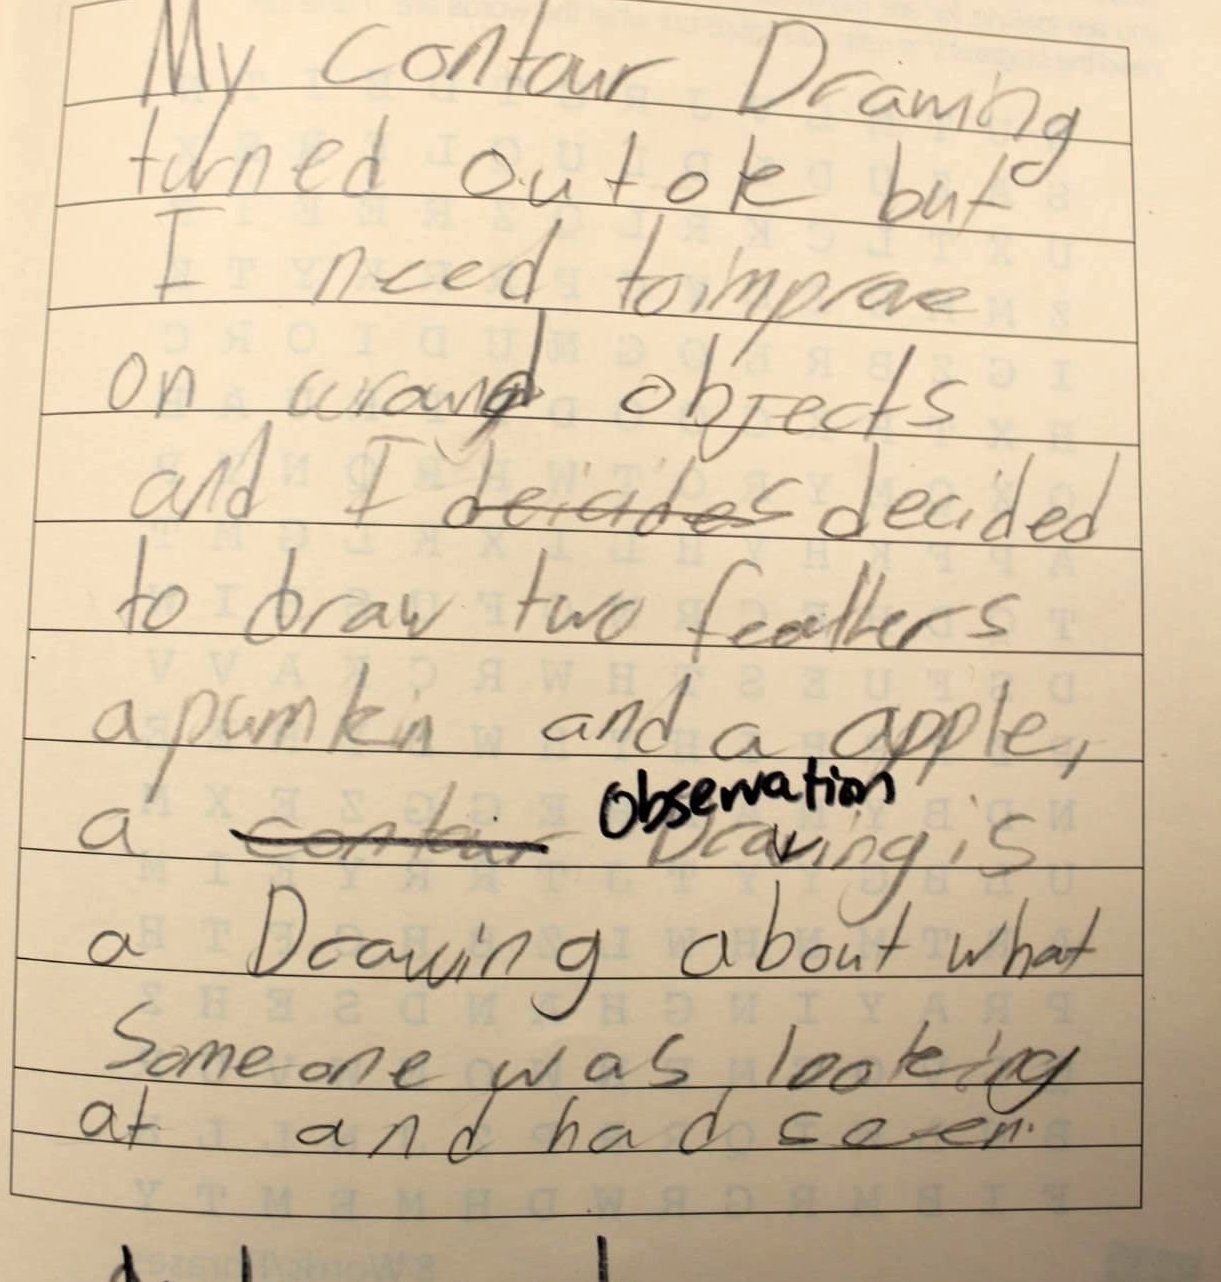 My Contour Drawing
turned out ok but
I need to improve
on objects
and I deicides decided
to draw two feathers
a pumkin and a apple,
observation
a contour Drawing is
a Drawing about what
Someone was looking
at and had seen.